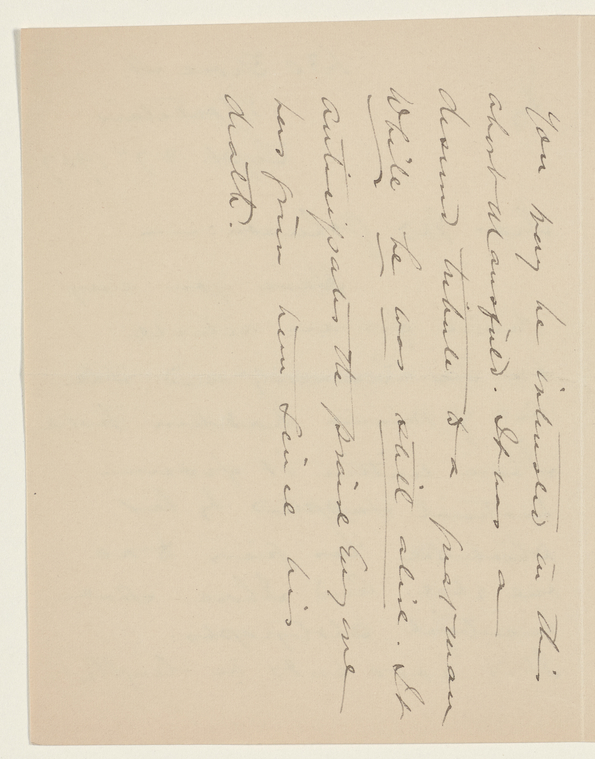 You may be interested in this
about Mansfield. It was a
deserved tribute to a great man
while he was still alive. It
anticipates the praise Every one
has given him since his
death.